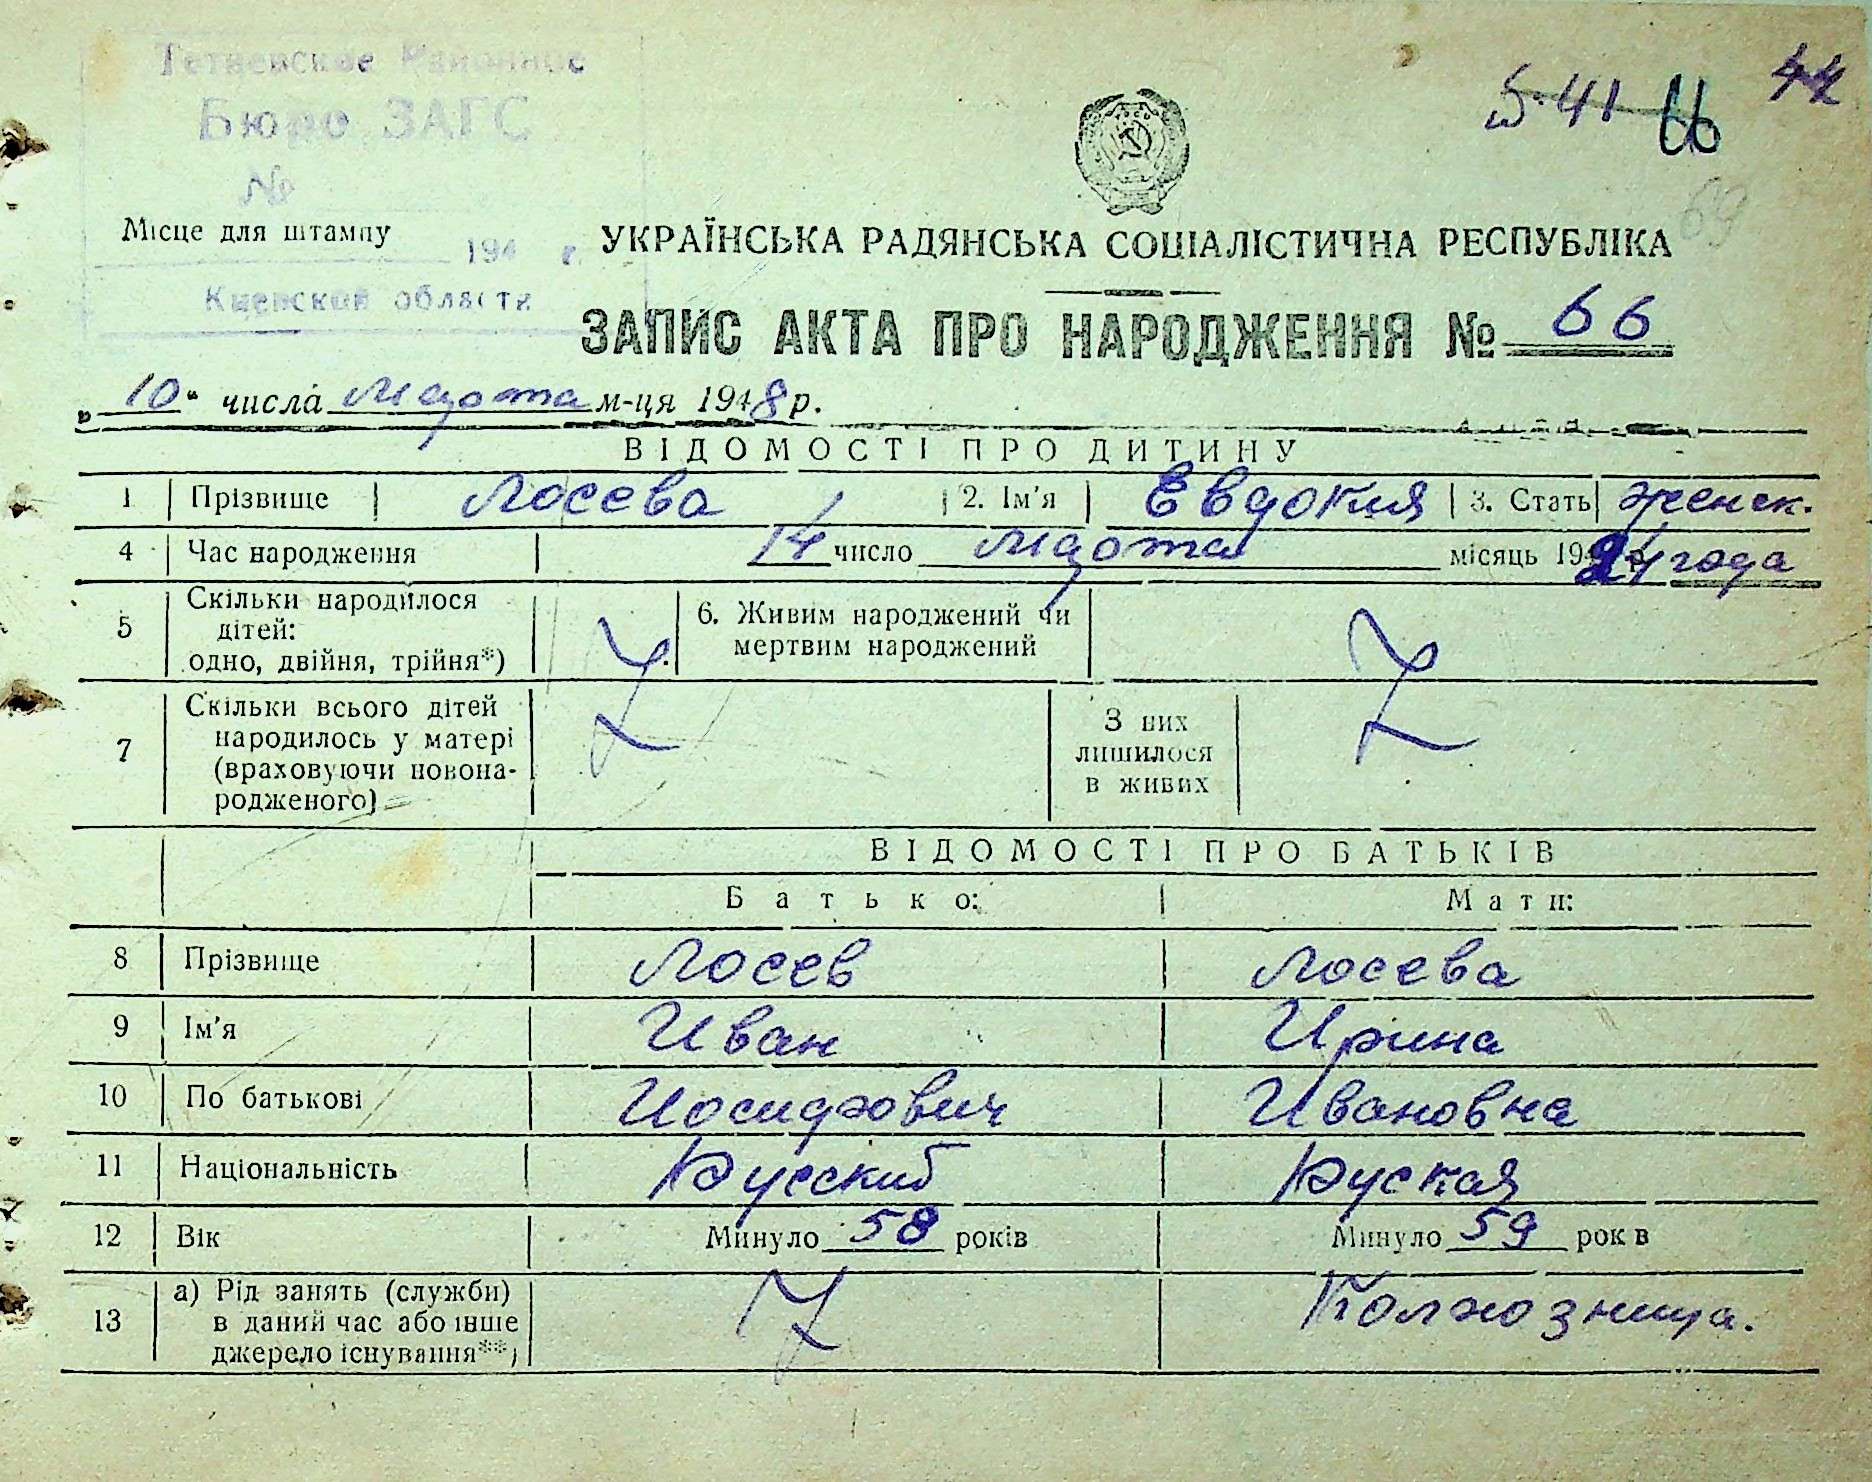 Бюро ЗАГС
№
Місце для штампу
194 г.
Киевской области
5-41 66 44
69
УКРАЇНСЬКА РАДЯНСЬКА СОЦІАЛІСТИЧНА РЕСПУБЛІКА
ЗАПИС АКТА ПРО НАРОДЖЕННЯ № 66
„10“ числа марта м-ця 1948 р.
ВІДОМОСТІ ПРО ДИТИНУ
1 Прізвище Лосева 2. Ім'я Евдокия 3. Стать женск.
4 Час народження 14 число марта місяць 1924 года
5 Скільки народилося
дітей:
одно, двійня, трійня*)
6. Живим народжений чи
мертвим народжений
7 Скільки всього дітей
народилось у матері
(враховуючи новона-
родженого)
З них
лишилося
в живих
ВІДОМОСТІ ПРО БАТЬКІВ
Батько: Мати:
8 Прізвище Лосев Лосева
9 Ім'я Иван Ирина
10 По батькові Иосифович Ивановна
11 Національність Русский Руская
12 Вік Минуло 58 років Минуло 59 рок в
13 а) Рід занять (служби)
в даний час або інше
джерело існування**)
Колхозница.